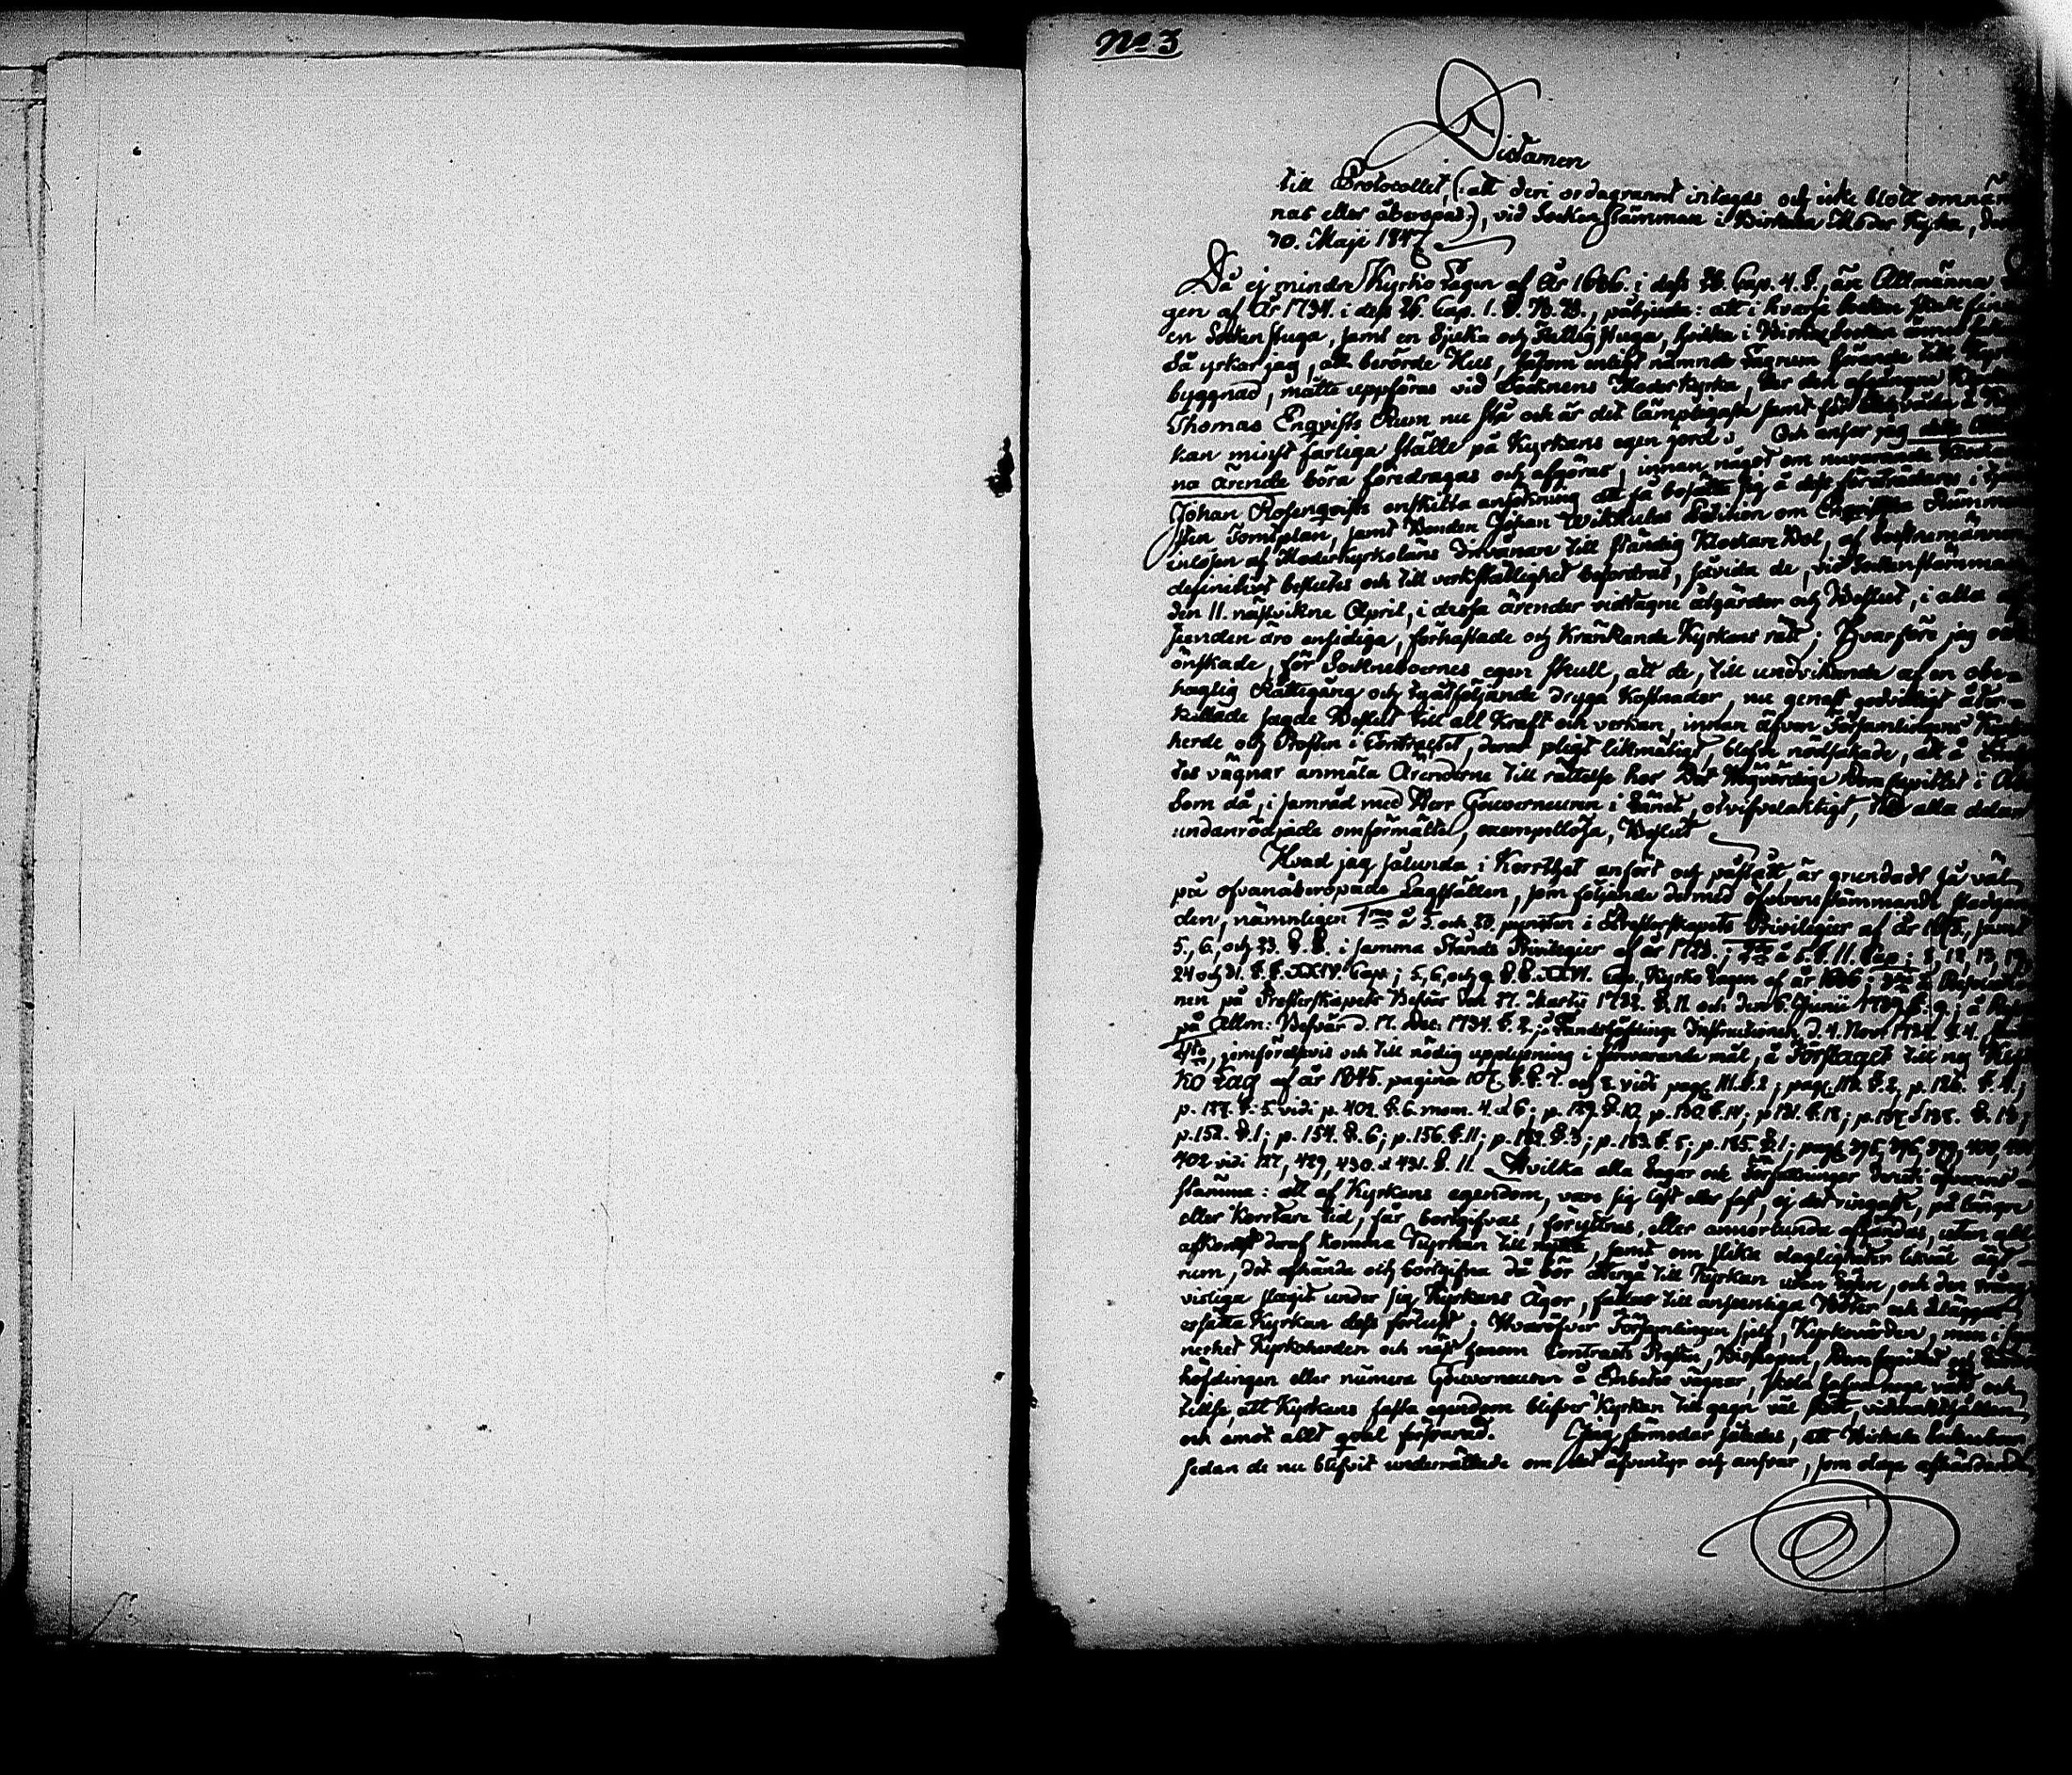 No 3
Dictamen
till Protocollet, (: att deri ordagrannt intagas och icke blott omnäm
nas eller åberopas:), vid Sockenstämman i Birkala Moder Kyrka, den
30. Maji 1847
Då ej mindre Kyrko Lagen af År 1686. i dess 26. Cap. 4. §., än Allmänna
gen af År 1734. i dess 26. Cap. 1. §. , påbjuda: att i hvarje Socken skall
en Sockenstuga, samt en Sjuka och Fattigstuga, hvilka i Birkala Socken ännu
Så yrkar jag, att berörde Hus, såsom enligt nämnde Lagrum hörande till Kyrko
byggnad, måtte uppföras vid Socknens Moderkyrka, der den afgångne
Thomas Enqvists Rum nu stå och är det lämpligaste samt för
kan minst farliga ställe på Kyrkans egen jord. Och anser jag detta
na ärende böra föredragas och afgöras, innan något om nuvarande
Johan Rosenqvists enskilta ansökning att få bosätta sig å dess företrädares i
sten Tomtplan, samt Bonden Johan Petition om Enqvistska Rummens
inlösen af Moderkyrkoläns Invånare till ständig Klockare Bol, af Socknemännen
definitivt beslutes och till verkställighet befordras, såvida de, vid Sockenstämman
den 11. nästvikne April, i dessa ärender vidtagne åtgärder och Beslut, i alla
seenden äro ensidiga, förhastade och kränkande Kyrkans rätt; Hvarföre jag
önskade, för Sockneboernes egen skull, att de, till undvikande af en obe-
haglig Rättegång och ty åtföljande dryga Kostnader, nu genast godvilligt åter-
kallade sagde Beslut till all kraft och verkan, innan äfven Församlingens Kyrko
herde och Prosten i Contractet, deras pligt likmätigt, blefve nödsakade, att å Embe
tes vägnar anmäla Ärenderne till rättelse hos Det Högvördiga Dom Capitlet i Åbo
som då, i samråd med Herr Gouverneuren i Länet, otvifvelaktigt, till alla delar
undanrödjade omförmälte, exempellösa, Beslut
Hvad jag sålunda i Korthet anfört och påstått är grundadt så väl
på ofvanåberopade Lagställen, som följande dermed öfverensstämmande stadgan
den, nämnligen 1mo å 5. och 23. puncten i Presterskapets Privilegier af år 1675., samt
5., 6, och 23. §.§. i samma Stånds Privilegier af år 1723.; 2do å 5. §. 11. Cap.; 8, 12, 13, 19,
24 och 31. §.§. XXIV. Cap.; 5, 6, och 9 §.§. XXVI. Cap. Kyrko Lagen af år 1686; 3tio å Resolutio
nen på Presterskapets Besvär den 27. Martii 1732. §. 11. och den 6. Junii §. 9.; å
på Allm: Besvär d. 17. Dec. 1734. §. 2.; å Landshöfdinge Instructionen d. 4. Nov. 1734. §. 4.
4to, jemförelsevis och till nödig upplysning i förevarande mål, å Förslaget till ny Kyr
ko Lag af år 1845. pagina 107. §.§. 7. och 8. vidi pag. 111. §. 2; pag. 112. §. 2, p. 126. §. 4;
p. 127. §. 5. vidi p. 402. §. 6. mom. 4. d 6; p. 129. §. 12, p. 130. §. 14; p. 131. §. 18; p. 137 d 138. §. 16;
p. 152. §. 1; p. 154. §. 6; p. 156. §. 11; p. 182. §. 3; p. 183. §. 5; p. 185. §. 1; pag. 375, 376, 379, 400,
402 vidi 127, 429, 430. d 431. §. 11. Hvilka alla Lagar och Författningar deruti öfverens-
stämma: att af Kyrkans egendom, vare sig löst eller fast, ej det ringaste, på längre
eller kortare tid, får bortgifvas, föryttras, eller annorlunda afhändas, utan all
afkomst deraf komma Kyrkan till nytta, samt om slika olagligheter likväl ägt
rum, det afhända och bortgifna då bör återgå till Kyrkan utan lösen, och den
visliga slagit under sig Kyrkans Ägor, fällas till ansenliga böter och
ersätta Kyrkan dess förlust; Hvaröfver Församlingen sjelf, Kyrkovärden, men i syn
nerhet Kyrkoherden och näst honom Contracts Prosten, Biskopen, Dom Capitlet och Lands
höfdingen eller numera Gouverneuren å Embetes vägnar, skola hafva noga vård och
tillse, att Kyrkans fasta egendom blifver Kyrkan till gagn väl skött, vidmakthållen
och emot allt qval försvarad. Jag förmodar således, att Birkala Sockneboer
sedan de nu blifvit underrättade om det äfventyr och ansvar, som dem